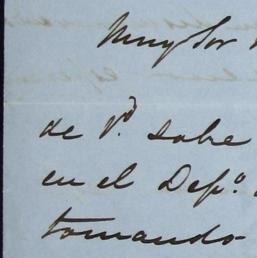 Muy Sor
de Vd. sobre
en el Depo.
tomando